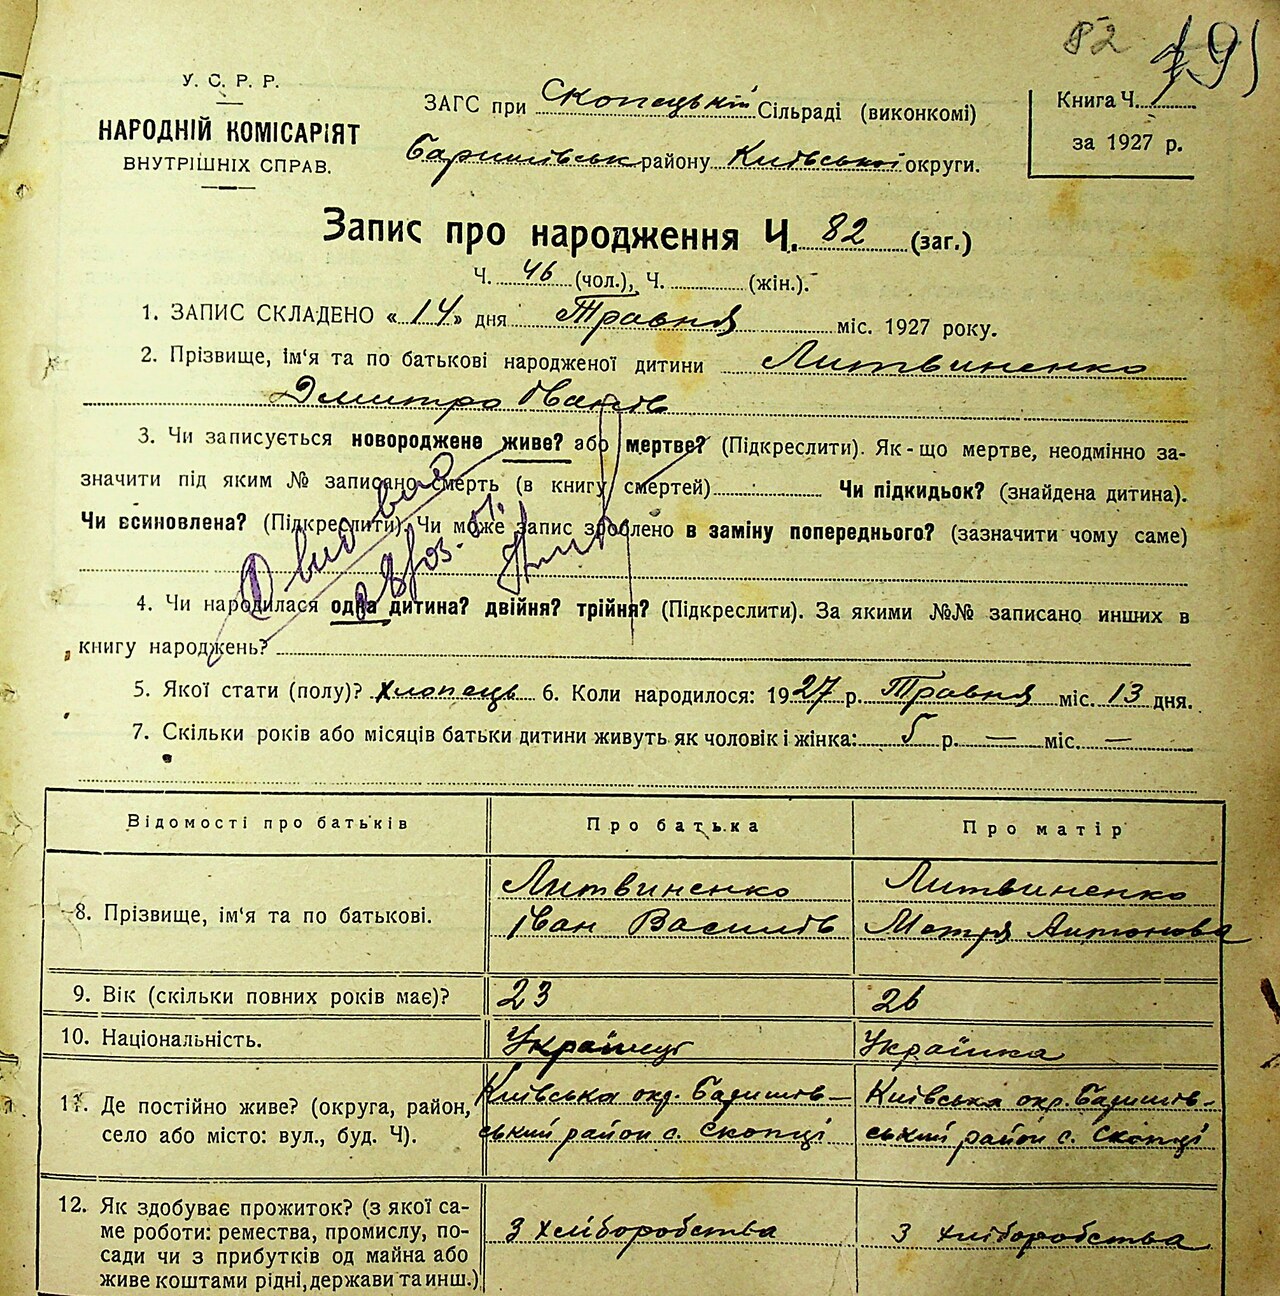 82 191
У. С. Р. Р.
НАРОДНІЙ КОМІСАРІЯТ
ВНУТРІШНІХ СПРАВ.
ЗАГС при Скопецькій Сільраді (виконкомі)
Баришівськ району Київської округи.
Книга Ч.
за 1927 р.
Запис про народження Ч. 82 (заг.)
Ч. 46 (чол.), Ч. (жін.).
1. ЗАПИС СКЛАДЕНО «14» дня Травня міс. 1927 року.
2. Прізвище, ім'я та по батькові народженої дитини Литвиненко
Дмитро Іванів
3. Чи записується новороджене живе? або мертве? (Підкреслити). Як-що мертве, неодмінно за-
значити під яким № записано смерть (в книгу смертей) Чи підкидьок? (знайдена дитина).
Чи всиновлена? (Підкреслити). Чи може запис зроблено в заміну попереднього? (зазначити чому саме)
4. Чи народилася одна дитина? двійня? трійня? (Підкреслити). За якими №№ записано инших в
книгу народжень?
5. Якої стати (полу)? хлопець 6. Коли народилося: 1927 р. Травня міс. 13 дня.
7. Скільки років або місяців батьки дитини живуть як чоловік і жінка: 5 р. — міс. —
Відомості про батьків Про батька Про матір
8. Прізвище, ім'я та по батькові.
Литвиненко
Іван Василів
Литвиненко
Мотря Антонова
9. Вік (скільки повних років має)? 23 26
10. Національність. Українець Українка
11. Де постійно живе? (округа, район,
село або місто: вул., буд. Ч).
Київська окр. Баришів-
ський район с. Скопці
Київська окр. Баришів-
ський район с. Скопці
12. Як здобуває прожиток? (з якої са-
ме роботи: ремества, промислу, по-
сади чи з прибутків од майна або
живе коштами рідні, держави та инш.)
З хліборобства
З хліборобства